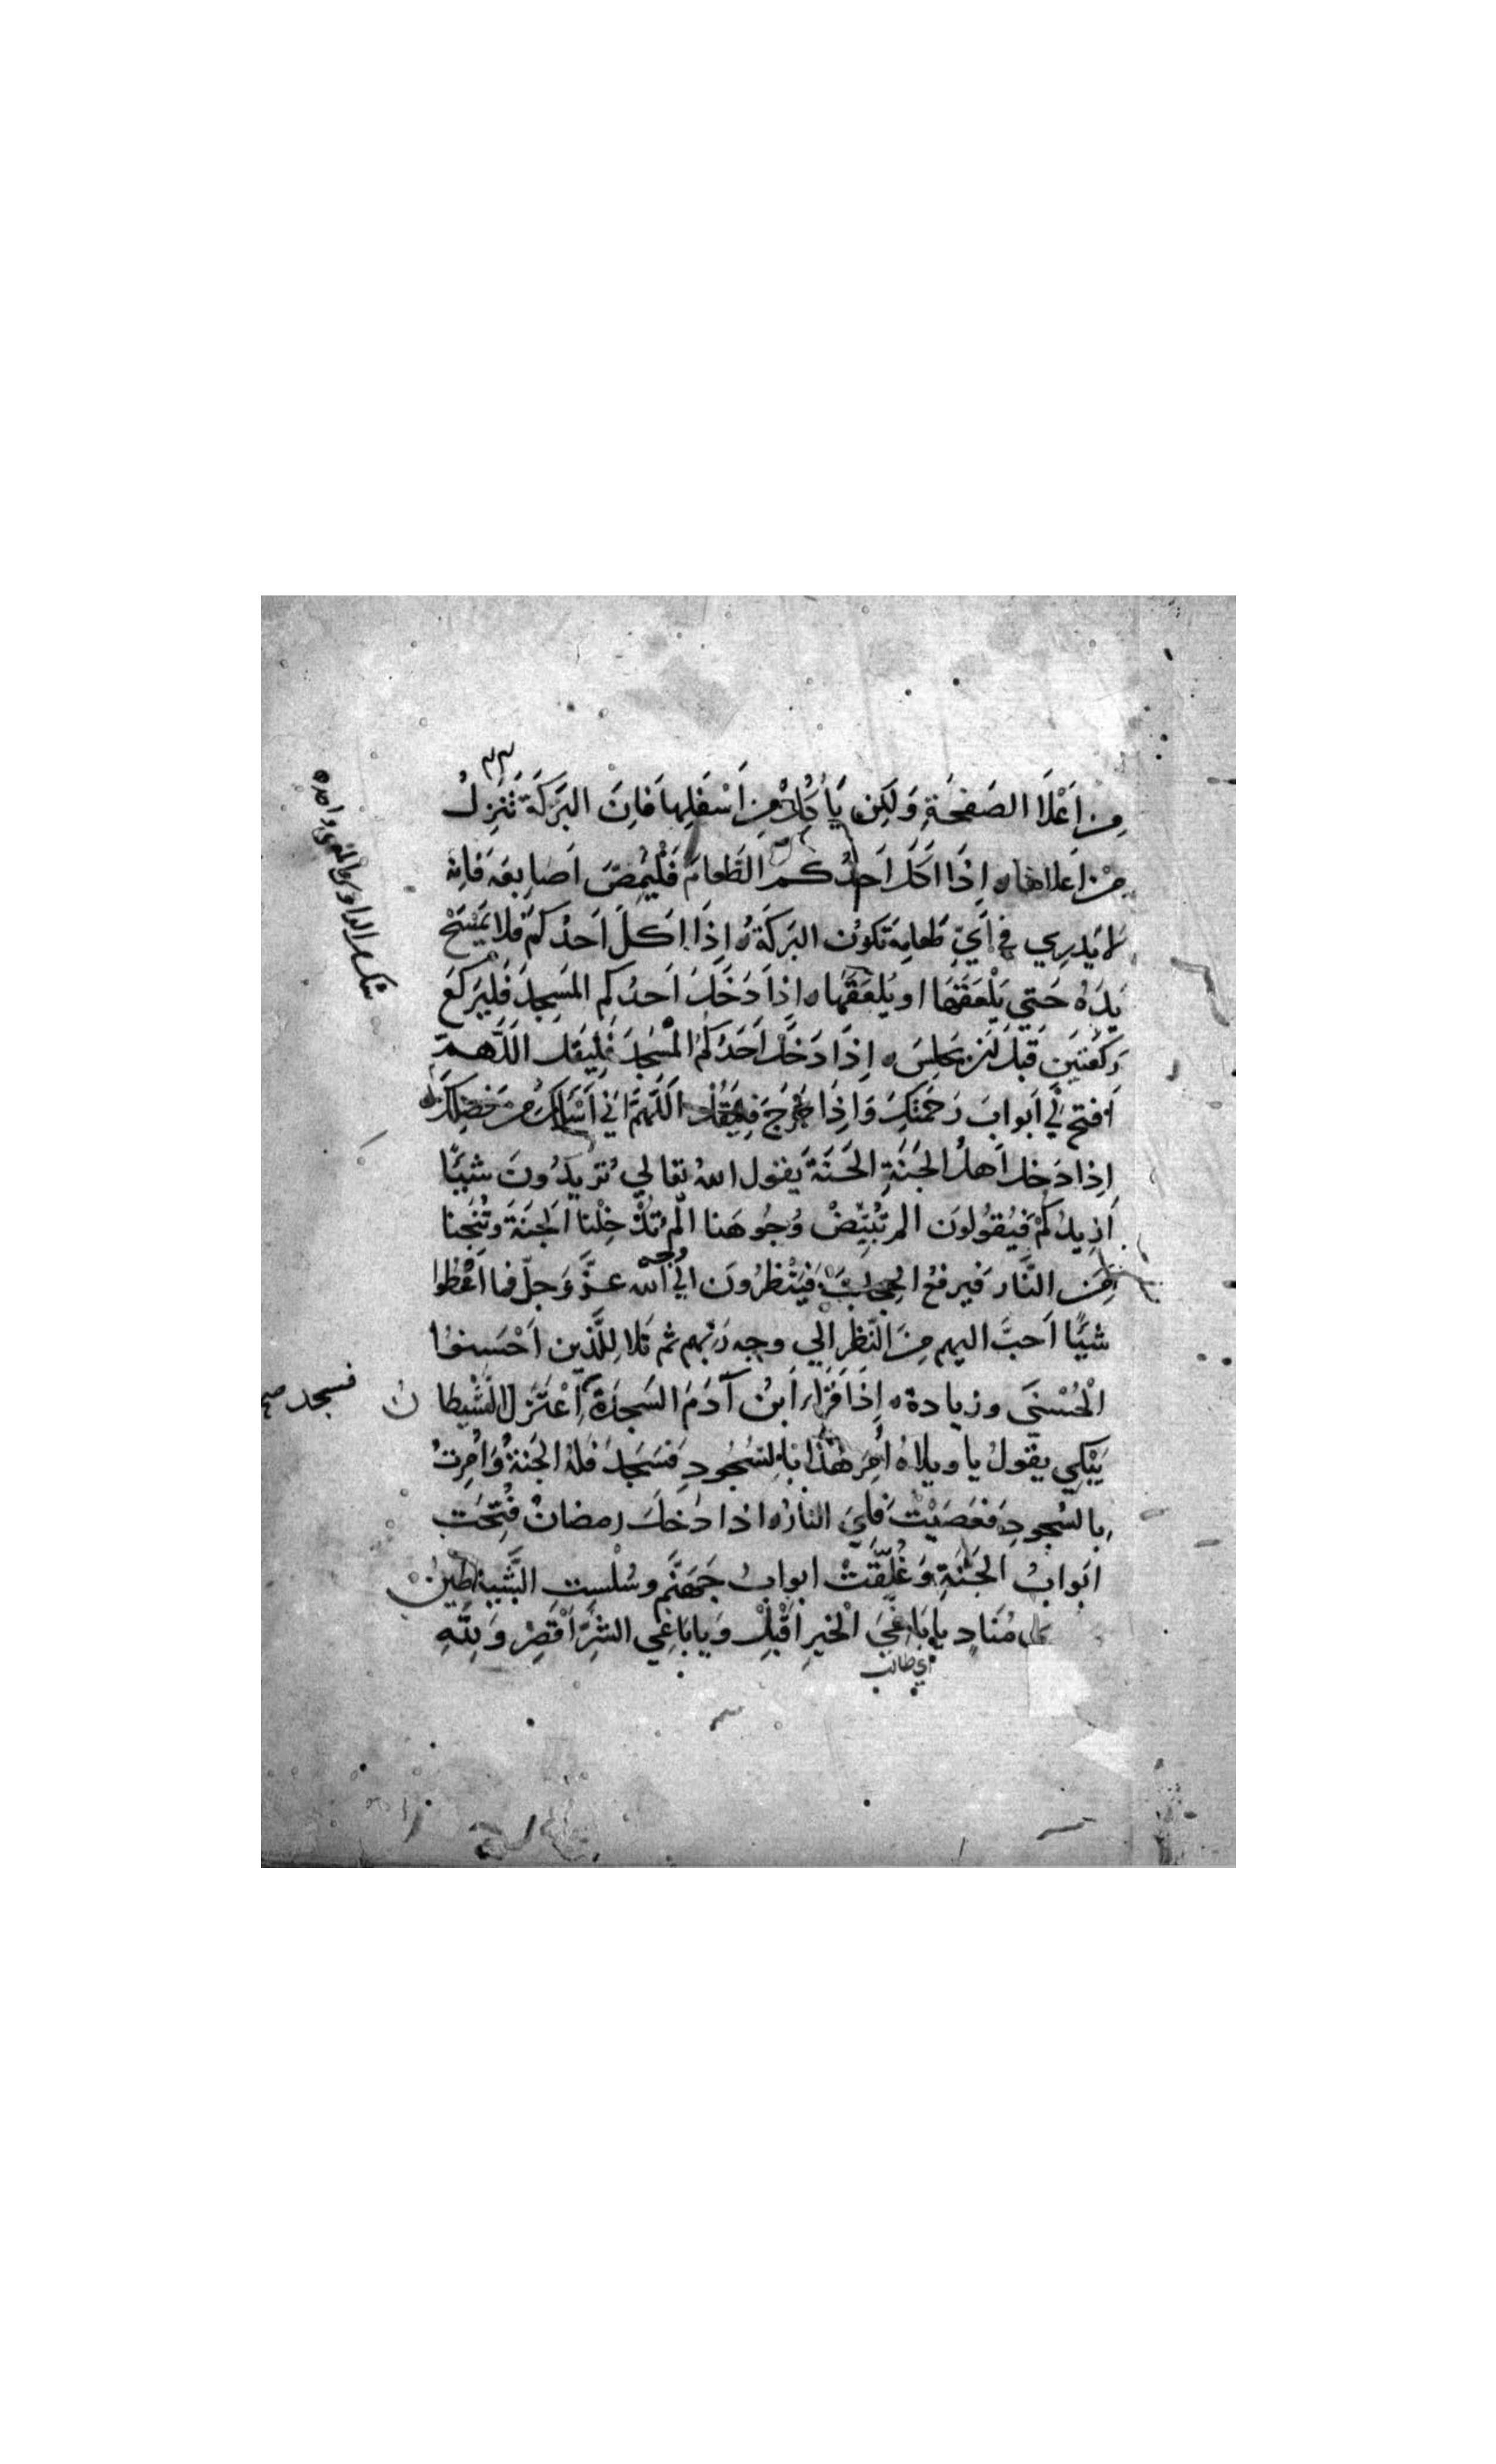 ٣٣
مِن اَعْلَا الصَفحَةِ وَلَكِن يَأكُلْ مِن اَسْفَلِها فَاِنَ البَرَكَةَ تَنزِلُ
مِن اَعلاها ه اِذَا اكَلَ اَحدُكم الطَعامَ فَلْيُمِصَّ اَصَابِعَه فَاِنه
لا يَدرِي في اَيِّ طَعامِه تَكوُن البَرَكَةُ ه اِذَا اَكلَ اَحدُكم فَلا يَمْسَحْ
يَدَهُ حَتي يَلْعَقَهَا او يُلعَقَهَا ه اِذَا دَخَلَ اَحدُكم المَسجِدَ فَليَركَعْ
رَكعَتَينِ قَبلَ اَن يَجلِسَ ه اِذَا دَخَلَ اَحَدُكمُ المَسْجِدَ فَليَقل اَللَّهمّ
اَفتح لي اَبوابَ رَحمَتِكَ وَاِذَا خَرَجَ فليَقُلْ اَللَّهمَّ اني اَسْالكَ من فَضلِكَ ه
اِذا دَخل اَهلُ الجَنَةِ الجَنَةَ يَقول اللهُ تعالي تُريدُونَ شَيًا
اَزِيدُكمْ فَيَقُولونَ الم تُبَيِّضْ وُجُوهَنا الَمْ تُدْخِلْنا الجنَةَ وتُنَجِنا
مِن النَّارِ فيرفعُ الحِجابَ فَيَنْظرُونَ الي وجه الله عزَّ وَجلّ فما اعْطُوا
شَيًا اَحبَّ اليهم مِنَ النَّظر الي وجه رَبهم ثم تَلا لِلَّذين اَحْسَنوا
الْحُسْنَى وزيادة ه اِذَا قَرَاَ ابنُ آدَمَ السَجدَةَ اِعْتَزَل الشَّيْطا نُ
فسجد صح
يَبْكِي يقولُ يا ويلاهُ اُمِرَ هَذَا بالسُجُودِ فَسَجَدَ فَلهُ الجَنةُ وَاُمِرتُ
بِالسُجودِ فَعَصَيْتُ فَلِيَ النارُ ه اذا دَخلَ رمضانُ فُتِحَت
اَبوابُ الجَنَةِ وَغُلِّقَتْ ابوابُ جَهَنَّم وسُلْسِلتِ الشَّيَاطِينُ
مُنَادٍ يا بَاغِيَ الْخيرِ اَقْبِلْ وَيا بَاغِي الشَّرِّ اَقْصِرْ وَلِلّهِ
اي طالب